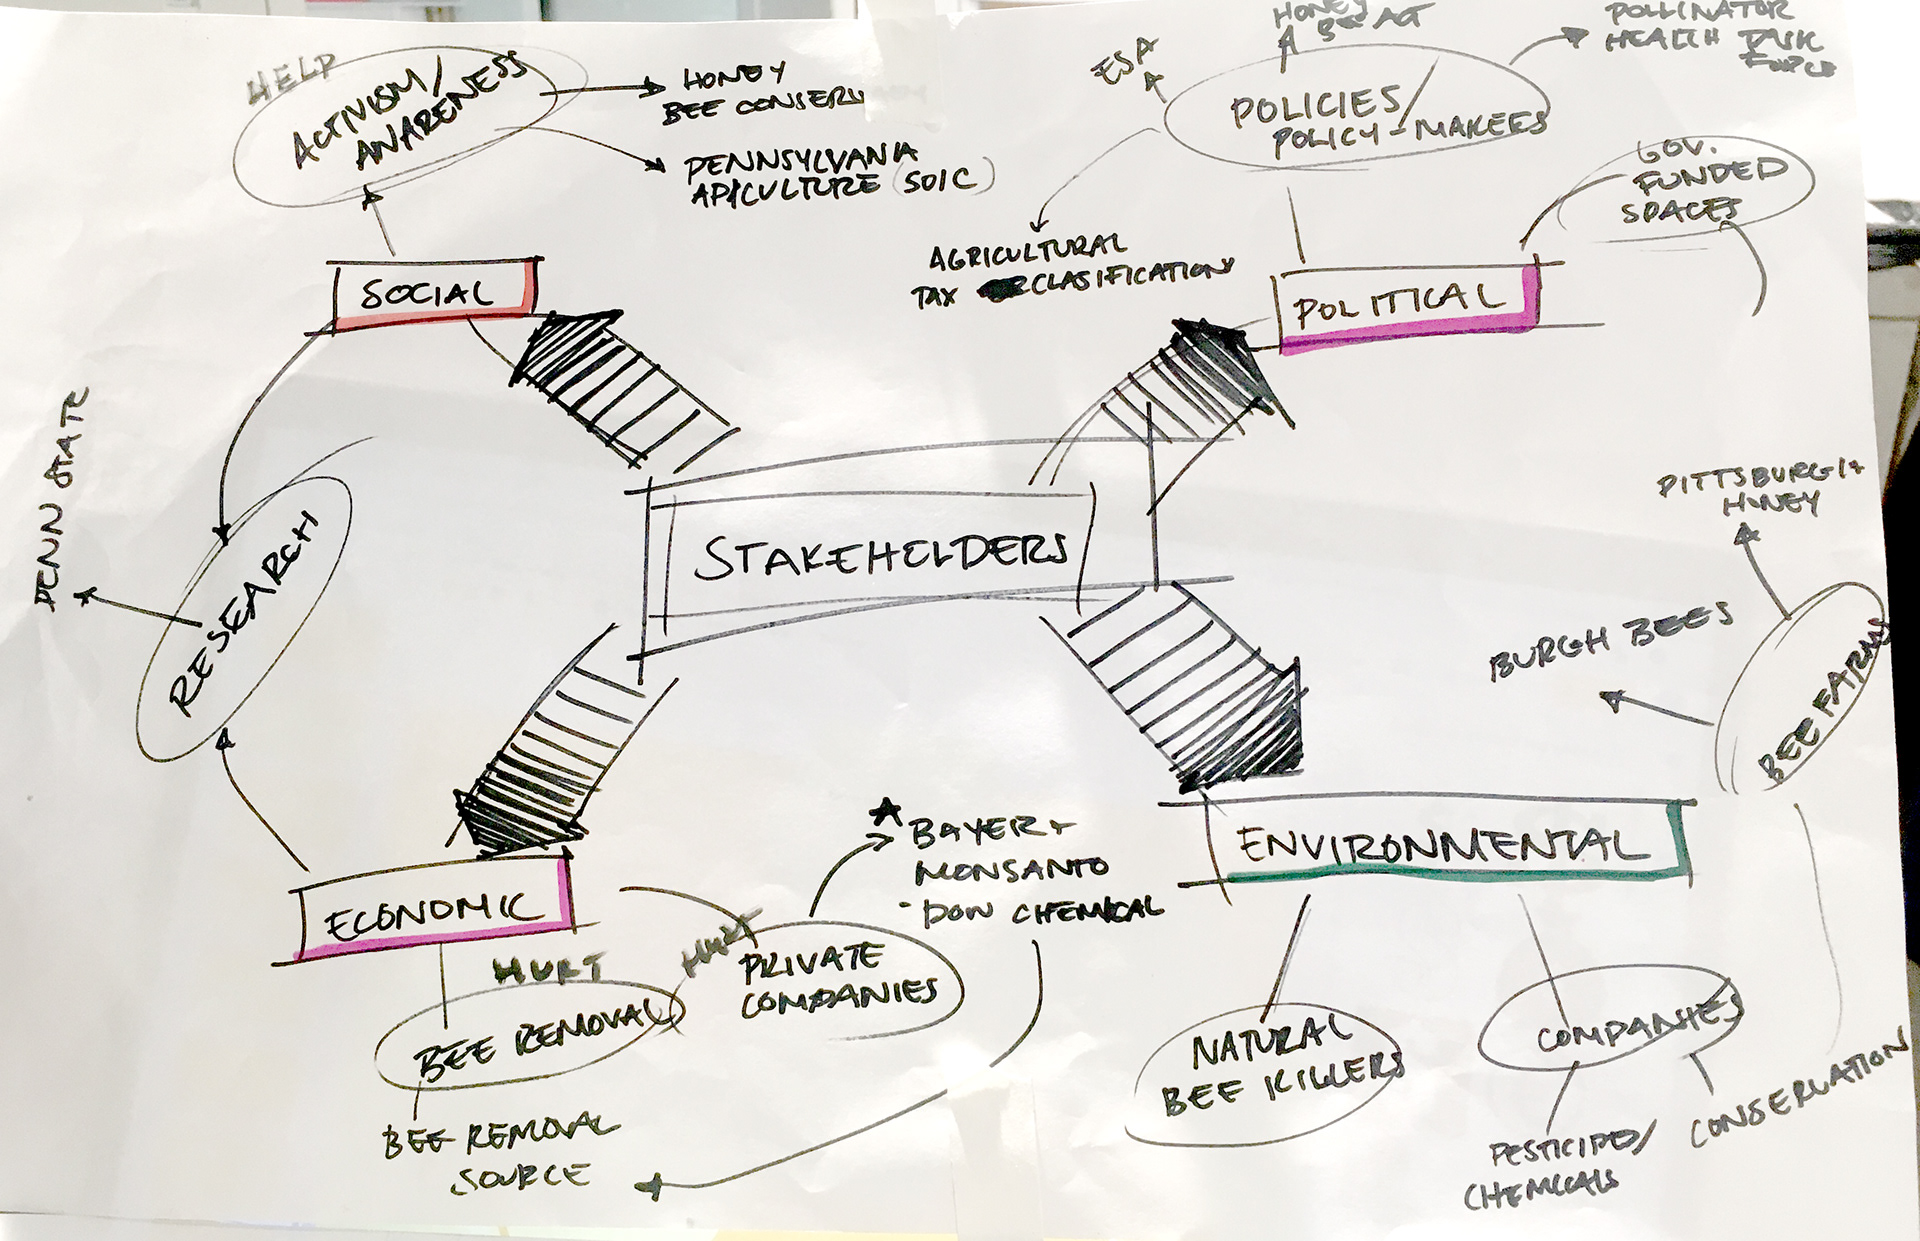 HELP
ACTIVISM/
AWARENESS
HONEY
BEE CONSERV
PENNSYLVANIA
APICULTURE (SOIC)
SOCIAL
ESA
HONEY
BEE ACT
POLLINATOR
HEALTH TASK
FORCE
POLICIES/
POLICY-MAKERS
GOV.
FUNDED
SPACES
AGRICULTURAL
TAX CLASIFICATION
POLITICAL
PENN STATE
RESEARCH
STAKEHOLDERS
PITTSBURGH
HONEY
BURGH BEES
BEE FARMS
ECONOMIC
HURT
BEE REMOVAL
BEE REMOVAL
SOURCE
HURT
PRIVATE
COMPANIES
BAYER +
MONSANTO
DOW CHEMICAL
ENVIRONMENTAL
NATURAL
BEE KILLERS
COMPANIES
PESTICIDES/
CHEMICALS
CONSERVATION